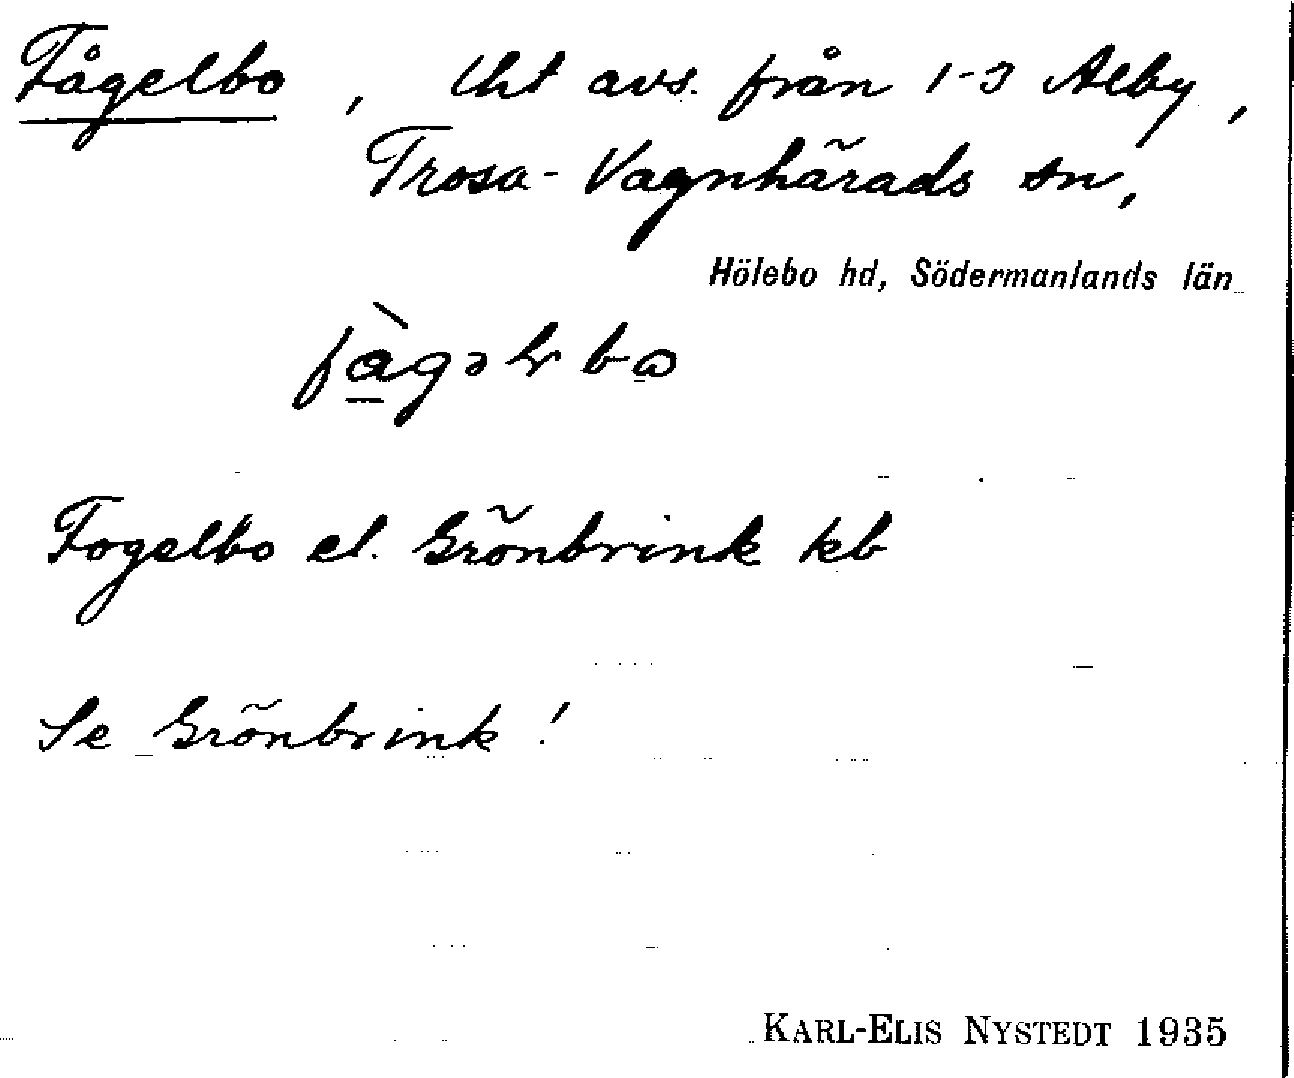 Fågelbo, lht avs. från 1-3 Alby,
Trosa-Vagnhärads sn,
Hölebo hd, Södermanlands län
Fogelbo el. Grönbrink kb
Se Grönbrink!
KARL-ELIS NYSTEDT 1935